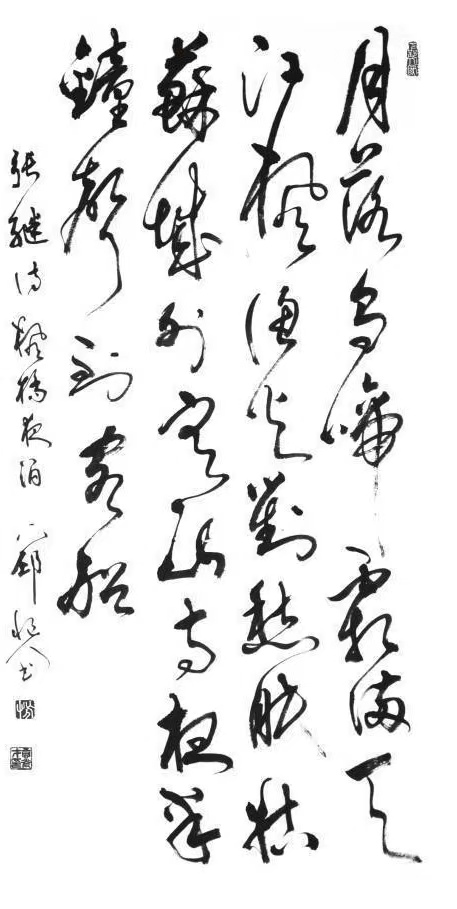 月落烏啼霜滿天
江楓漁火對愁眠姑
蘇城外寒山寺夜半
鐘聲到客船
張繼詩楓橋夜泊 書